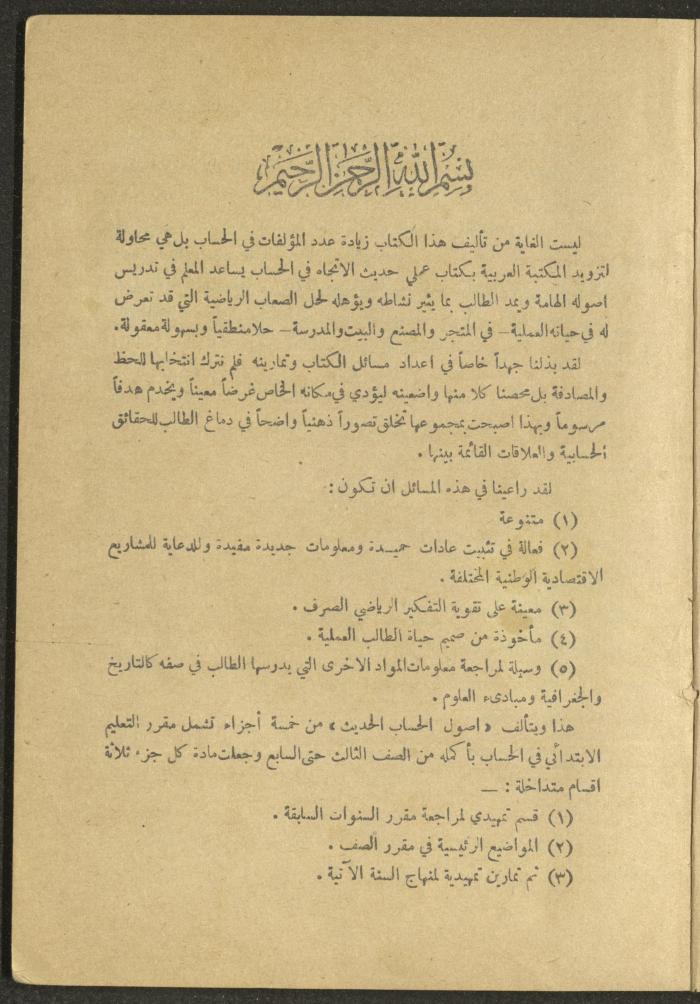 بسم الله الرحمن الرحيم
ليست الغاية من تأليف هذا الكتاب زيادة عدد المؤلفات في الحساب بل هي محاولة
لتزويد المكتبة العربية بكتاب عملي حديث الاتجاه في الحساب يساعد المعلم في تدريس
اصوله الهامة ويمد الطالب بما يثير نشاطه ويؤهله لحل الصعاب الرياضية التي قد تعرض
له في حياته العملية — في المتجر والمصنع والبيت والمدرسة — حلا منطقياً وبسهولة معقولة.
لقد بذلنا جهداً خاصاً في اعداد مسائل الكتاب وتمارينه فلم نترك انتخابها للحظ
والمصادفة بل محصنا كلا منها واضعينه ليؤدي في مكانه الخاص غرضاً معيناً ويخدم هدفاً
مرسوماً وبهذا اصبحت بمجموعها تخلق تصوراً ذهنياً واضحاً في دماغ الطالب للحقائق
الحسابية والعلاقات القائمة بينها.
لقد راعينا في هذه المسائل ان تكون :
(١) متنوعة
(٢) فعالة في تثبيت عادات حميدة ومعلومات جديدة مفيدة وللدعاية للمشاريع
الاقتصادية الوطنية المختلفة.
(٣) معينة على تقوية التفكير الرياضي الصرف.
(٤) مأخوذة من صميم حياة الطالب العملية.
(٥) وسيلة لمراجعة معلومات المواد الاخرى التي يدرسها الطالب في صفه كالتاريخ
والجغرافية ومبادىء العلوم.
هذا ويتألف «اصول الحساب الحديث» من خمسة أجزاء تشمل مقرر التعليم
الابتدائي في الحساب بأكمله من الصف الثالث حتى السابع وجعلت مادة كل جزء ثلاثة
اقسام متداخلة : —
(١) قسم تمهيدي لمراجعة مقرر السنوات السابقة.
(٢) المواضيع الرئيسية في مقرر الصف.
(٣) ثم تمارين تمهيدية لمنهاج السنة الآتية.